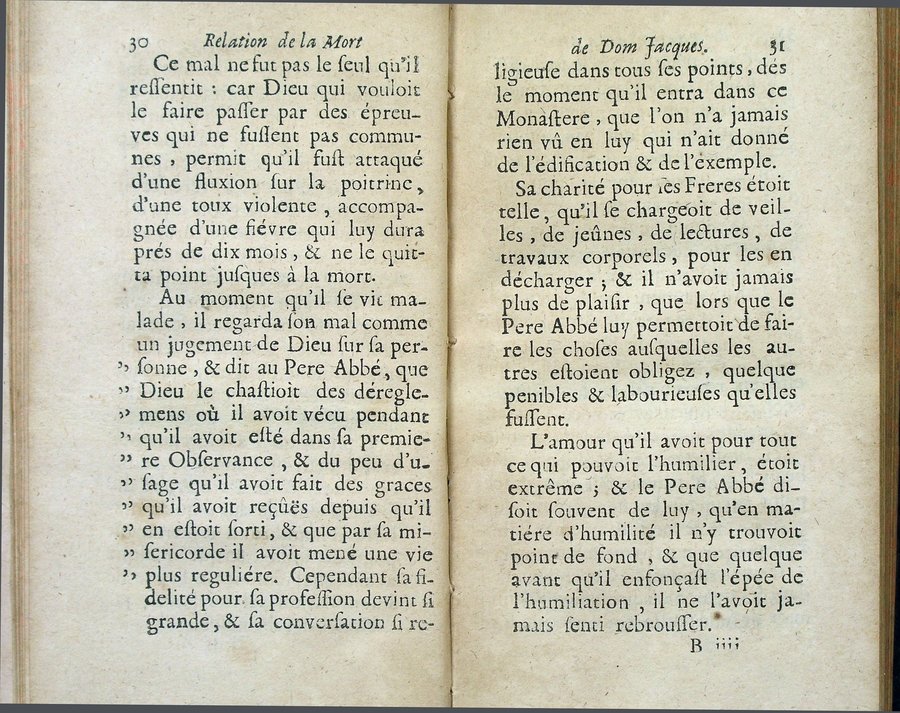 30 Relation de la Mort
Ce mal ne fut pas le ſeul qu'il
reſſentit : car Dieu qui vouloit
le faire paſſer par des épreu-
ves qui ne fuſſent pas commu-
nes , permit qu'il fuſt attaqué
d'une fluxion ſur la poitrine,
d'une toux violente , accompa-
gnée d'une fiévre qui luy dura
prés de dix mois , & ne le quit-
ta point juſques à la mort.
Au moment qu'il ſe vit ma-
lade , il regarda ſon mal comme
un jugement de Dieu ſur ſa per-
„ ſonne , & dit au Pere Abbé, que
„ Dieu le chaſtioit des déregle-
„ mens où il avoit vécu pendant
„ qu'il avoit eſté dans ſa premie-
„ re Obſervance , & du peu d'u-
„ ſage qu'il avoit fait des graces
„ qu'il avoit reçûës depuis qu'il
„ en eſtoit ſorti, & que par ſa mi-
„ ſericorde il avoit mené une vie
„ plus reguliére. Cependant ſa fi-
delité pour ſa profeſſion devint ſi
grande, & ſa converſation ſi re-
de Dom Jacques. 31
ligieuſe dans tous ſes points, dés
le moment qu'il entra dans ce
Monaſtere , que l'on n'a jamais
rien vû en luy qui n'ait donné
de l'édification & de l'exemple.
Sa charité pour ſes Freres étoit
telle, qu'il ſe chargeoit de veil-
les , de jeûnes , de lectures , de
travaux corporels , pour les en
décharger ; & il n'avoit jamais
plus de plaiſir , que lors que le
Pere Abbé luy permettoit de fai-
re les choſes auſquelles les au-
tres eſtoient obligez , quelque
penibles & labourieuſes qu'elles
fuſſent.
L'amour qu'il avoit pour tout
ce qui pouvoit l'humilier, étoit
extrême ; & le Pere Abbé di-
ſoit ſouvent de luy , qu'en ma-
tiére d'humilité il n'y trouvoit
point de fond , & que quelque
avant qu'il enfonçaſt l'épée de
l'humiliation , il ne l'avoit ja-
mais ſenti rebrouſſer.
B iiii